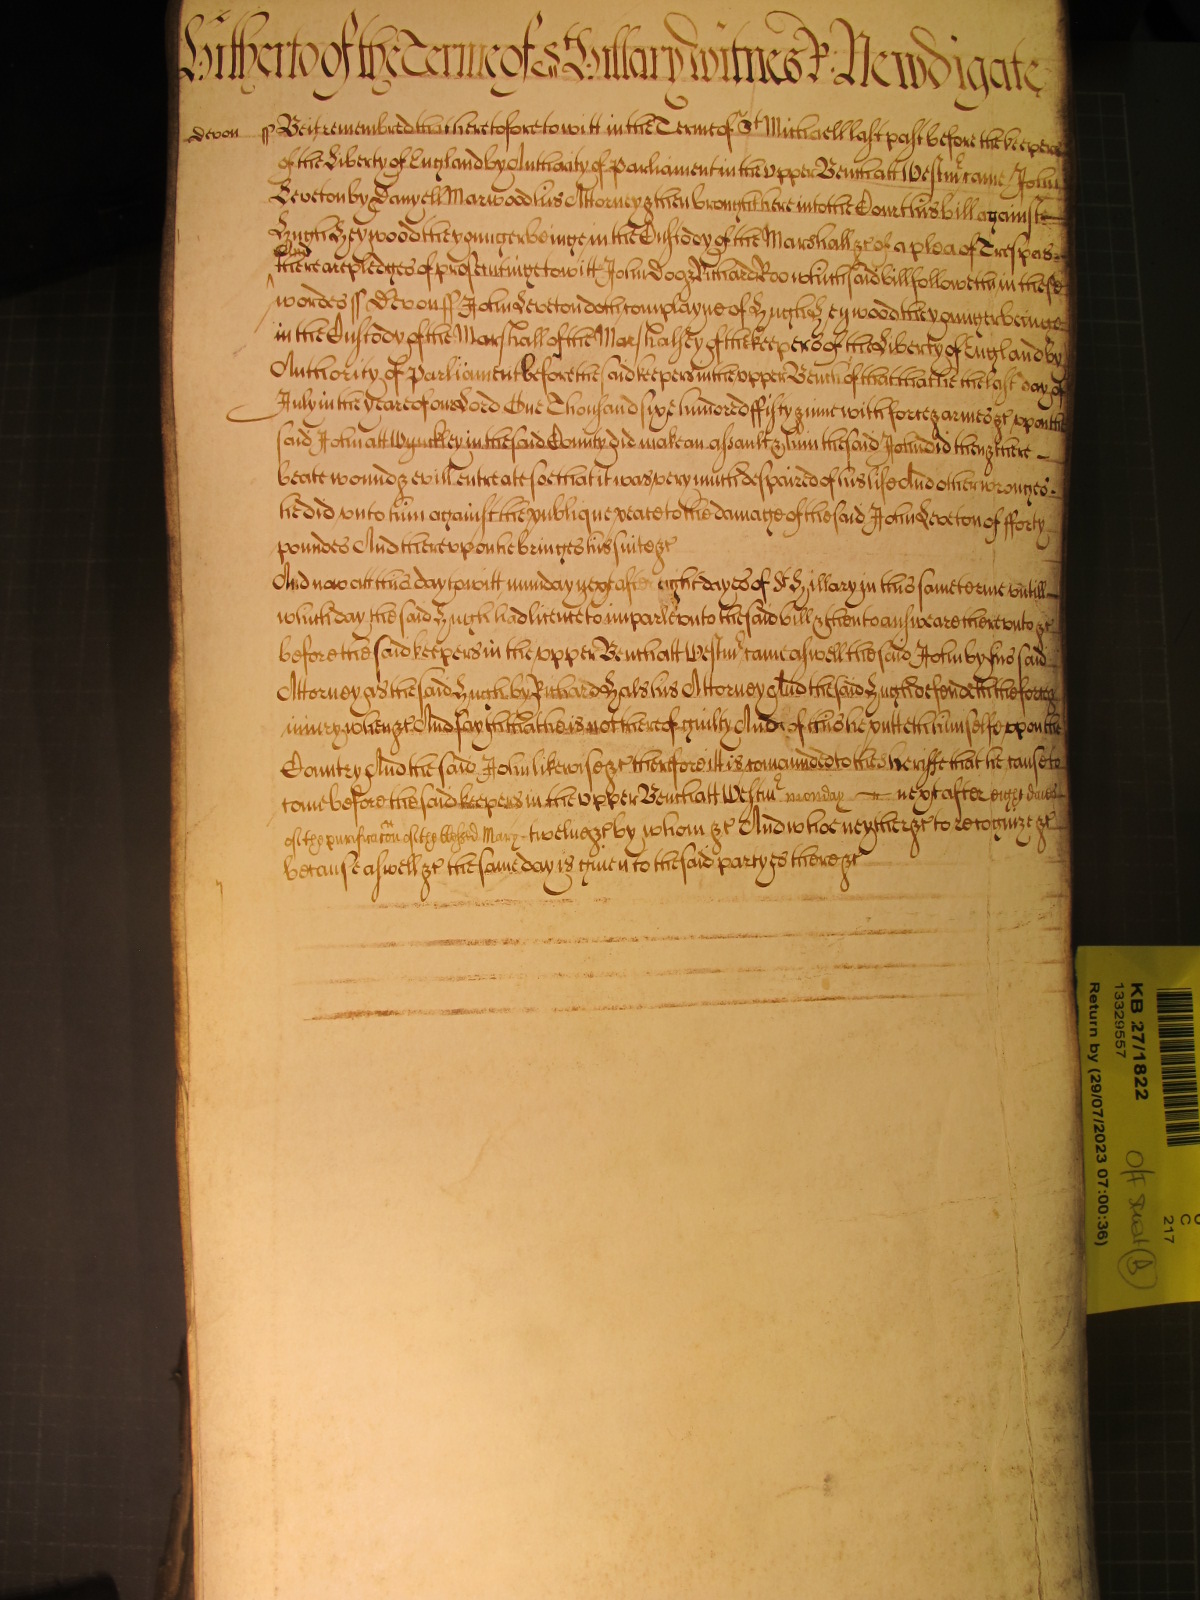 Hitherto of the Terme of St Hillary witnes R: Newdigate
Devon ss Be it remembred that heretofore to witt in the Terme of St Michaell last past before the keepers
of the Liberty of England by Authority of Parliament in the upper Bench att Westmr came John
Leveton by Danyell Marwood his Attorney & then brought here into the Court his bill against
Hugh Heywood the younger beinge in the Custody of the Marshall &c of a plea of Trespas
And
there are pledges of prosecutinge to witt John Doo & Richard Roo which said bill followeth in these
wordes ss Devon ss John Leveton doth complayne of Hugh Heywood the younger beinge
in the Custody of the Marshall of the Marshalsey of the keepers of the Liberty of England by
Authority of Parliament before the said keepers in the upper Bench of that that he the last day of
July in the yeare of our Lord One Thousand sixe hundred fifty & nine with force & armes &c uppon the
said John att Wynckley in the said County did make an assault & him the said John did then & there
beate wound & evill entreate soe that it was very much despaired of his life And other wronges
he did unto him against the publique peace to the damage of the said John Leveton of fforty
poundes And thereuppon he bringes his suite &c
And now att this day to witt munday next after eight dayes of St Hillary in this same terme untill
which day the said Hugh had licence to imparle unto the said bill & then to answeare thereunto &c
before the said keepers in the upper Bench att Westmr came aswell the said John by his said
Attorney as the said Hugh by Richard Hals his Attorney And the said Hugh defendeth the force &
iniury when &c And sayth that he is not thereof guilty And of this he putteth himselfe uppon the
Country And the said John likewise &c therefore itt is comaunded to the sheriffe that he cause to
come before the said keepers in the upper Bench att Westmr monday next after eight daies
of the purificacon of the blessed Mary twelve &c by whom &c And who neyther &c to recognize &c
because aswell &c the same day is given to the said partyes there &c
KB 27/1822
13329557
Return by (29/07/2023 07:00:36)
C
217